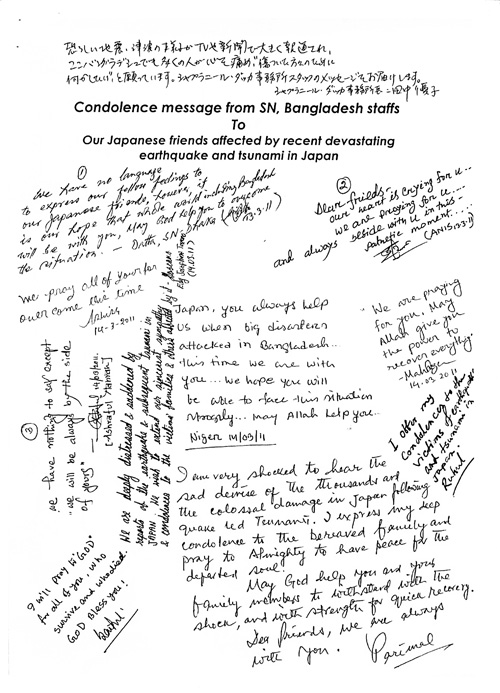 恐ろしい地震、津波の様子がTVや新聞で大きく報道され、
ここバングラデシュでも多くの人が心を痛め"傷ついた方々のために
何かしたい"と願っています。シャプラニール・ダッカ事務所スタッフのメッセージをお届けします。
シャプラニール・ダッカ事務所長 田中優子
Condolence message from SN, Bangladesh staffs
To
Our Japanese friends affected by recent devastating
earthquake and tsunami in Japan
①
We have no language
to express our fellow feelings to
our Japanese friends, however, it
is our hope that whole world including Bangladesh
will be with you, May God help you to overcome
the situation. — Dutta, SN, Dhaka
13.3.11
②
Dear friends-
our heart is crying for u..
we are praying for u...
and always beside with u in this
pathetic moment....
(ANIS
We pray all of you for
over come this time
14-3-2011
Japan, you always help
us when big disorders
attacked in Bangladesh...
This time we are with
you... we hope you will
be able to face this situation
strongly... may Allah help you..
Nigar 14/03/11
We are praying
for you. May
Allah give you
the power to
recover everything.
- Mahfuza
14.03.2011
③
we have nothing to say except
"we will be always by the side
of yours"
[Ashraful Hassan]
We are deeply distressed & saddened by
reports of the earthquake & subsequent tsunami in
JAPAN. I wish to extend our sincerest sympathy
& condolence to the victims families & others affected by
(14.03.11)
I offer my
condolences to the
victims of earthquake
and tsunami in
Japan.
Ruhul
I am very shocked to hear the
sad demise of the thousands and
the colossal damage in Japan following
quake led Tsunami. I express my deep
condolence to the bereaved family and
pray to Almighty to have peace for the
departed soul.
May God help you and your
family members to withstand with the
shock, and with strength for quick recovery.
Dear friends, we are always
with you.
Parimal
I will pray to "GOD"
for all of you, who
survive and who died.
GOD Bless you!